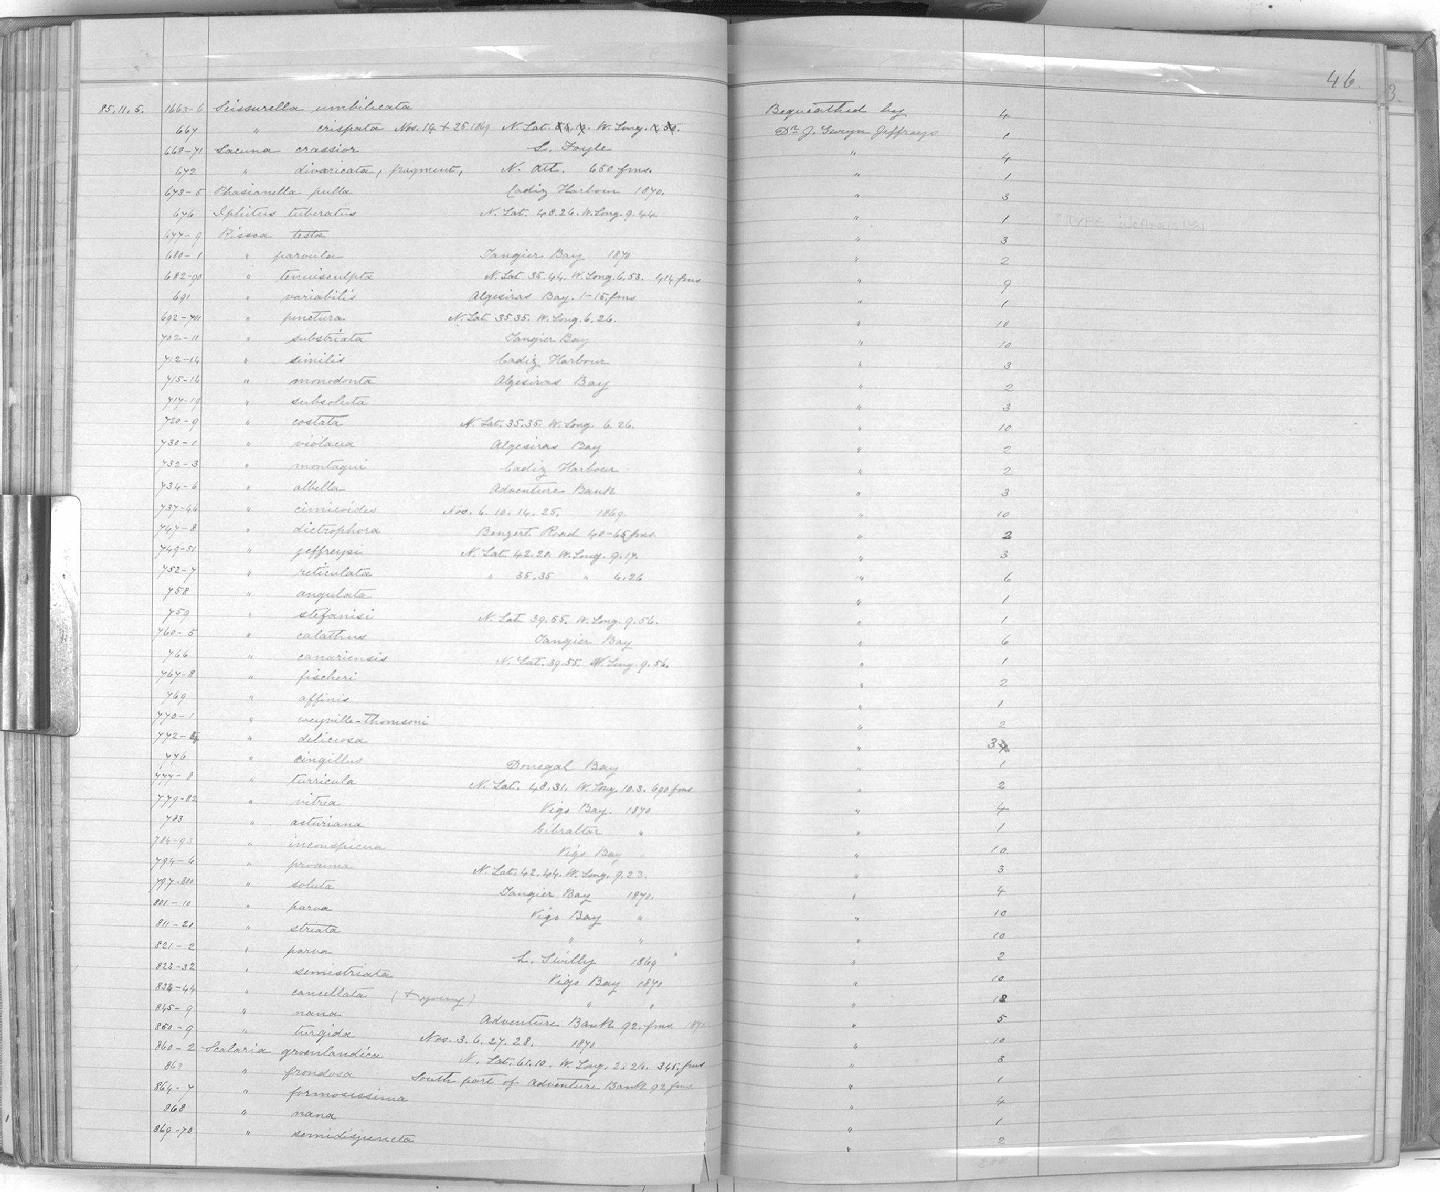 46.
85.11.5. 1663-6 Scissurella umbilicata Bequeathed by 4
667 " crispata Nos. 14 + 25 1869 N. Lat. W. Long. Dr. J. Gwyn Jeffreys 1
668-71 Lacuna crassior L. Foyle " 4
672 " divaricata, fragment, N. Atl. 650 fms. " 1
673-5 Phasianella pulla Cadiz Harbour 1870. " 3
676 Iphitus tuberatus N. Lat. 48.26. W. Long. 9.44 " 1
677-9 Rissoa testa " 3
680-1 " parvula Tangier Bay 1870 " 2
682-90 " tenuisculpta N. Lat. 35.44. W. Long. 6.53. 414 fms " 9
691 " variabilis Algesiras Bay. 1-15. fms " 1
692-701 " punctura N. Lat. 35.35. W. Long. 6.26. " 10
702-11 " substriata Tangier Bay " 10
712-14 " similis Cadiz Harbour " 3
715-16 " monodonta Algesiras Bay " 2
717-19 " subsoluta " 3
720-9 " costata N. Lat. 35.35. W. Long. 6.26. " 10
730-1 " violacea Algesiras Bay " 2
732-3 " montagui Cadiz Harbour " 2
734-6 " abella Adventure Bank " 3
737-46 " cimicoides Nos. 6. 10. 14. 25. 1869. " 10
747-8 " dictrophora Benzert Road 40-65 fms. " 2
749-51 " jeffreysi N. Lat. 42.20. W. Long. 9.17. " 3
752-7 " reticulata " 35.35 " 6.26 " 6
758 " angulata " 1
759 " stefanisi N. Lat. 39.55. W. Long. 9.56. " 1
760-5 " calathus Tangier Bay " 6
766 " canariensis N. Lat. 39.55. W. Long. 9.56. " 1
767-8 " fischeri " 2
769 " affinis " 1
770-1 " wyville-thomsoni " 2
772-4 " deliciosa " 3
776 " cingillus Donegal Bay " 1
777-8 " turricula N. Lat. 48.31. W. Long. 10.3. 690 fms " 2
779-82 " vitrea Vigo Bay. 1870 " 4
783 " asturiana Gibraltar " " 1
784-93 " inconspicua Vigo Bay " 10
794-6 " proxima N. Lat. 42.44. W. Long. 9.23. " 3
797-800 " soluta Tangier Bay 1870. " 4
801-10 " parva Vigo Bay " " 10
811-20 " striata " " " 10
821-2 " parva L. Swilly 1869 " 2
823-32 " semistriata Vigo Bay 1870 " 10
833-44 " cancellata (+ young) " " " 12
845-9 " nana Adventure Bank 92. fms " 5
850-9 " turgida Nos. 3. 6. 27. 28. 1870 " 10
860-2 Scalaria groenlandica N. Lat. 61.10. W. Long. 2.24. 345. fms " 3
863 " frondosa South part of Adventure Bank 92 fms " 1
864-7 " formosissima " 4
868 " nana " 1
869-70 " semidisjuncta " 2